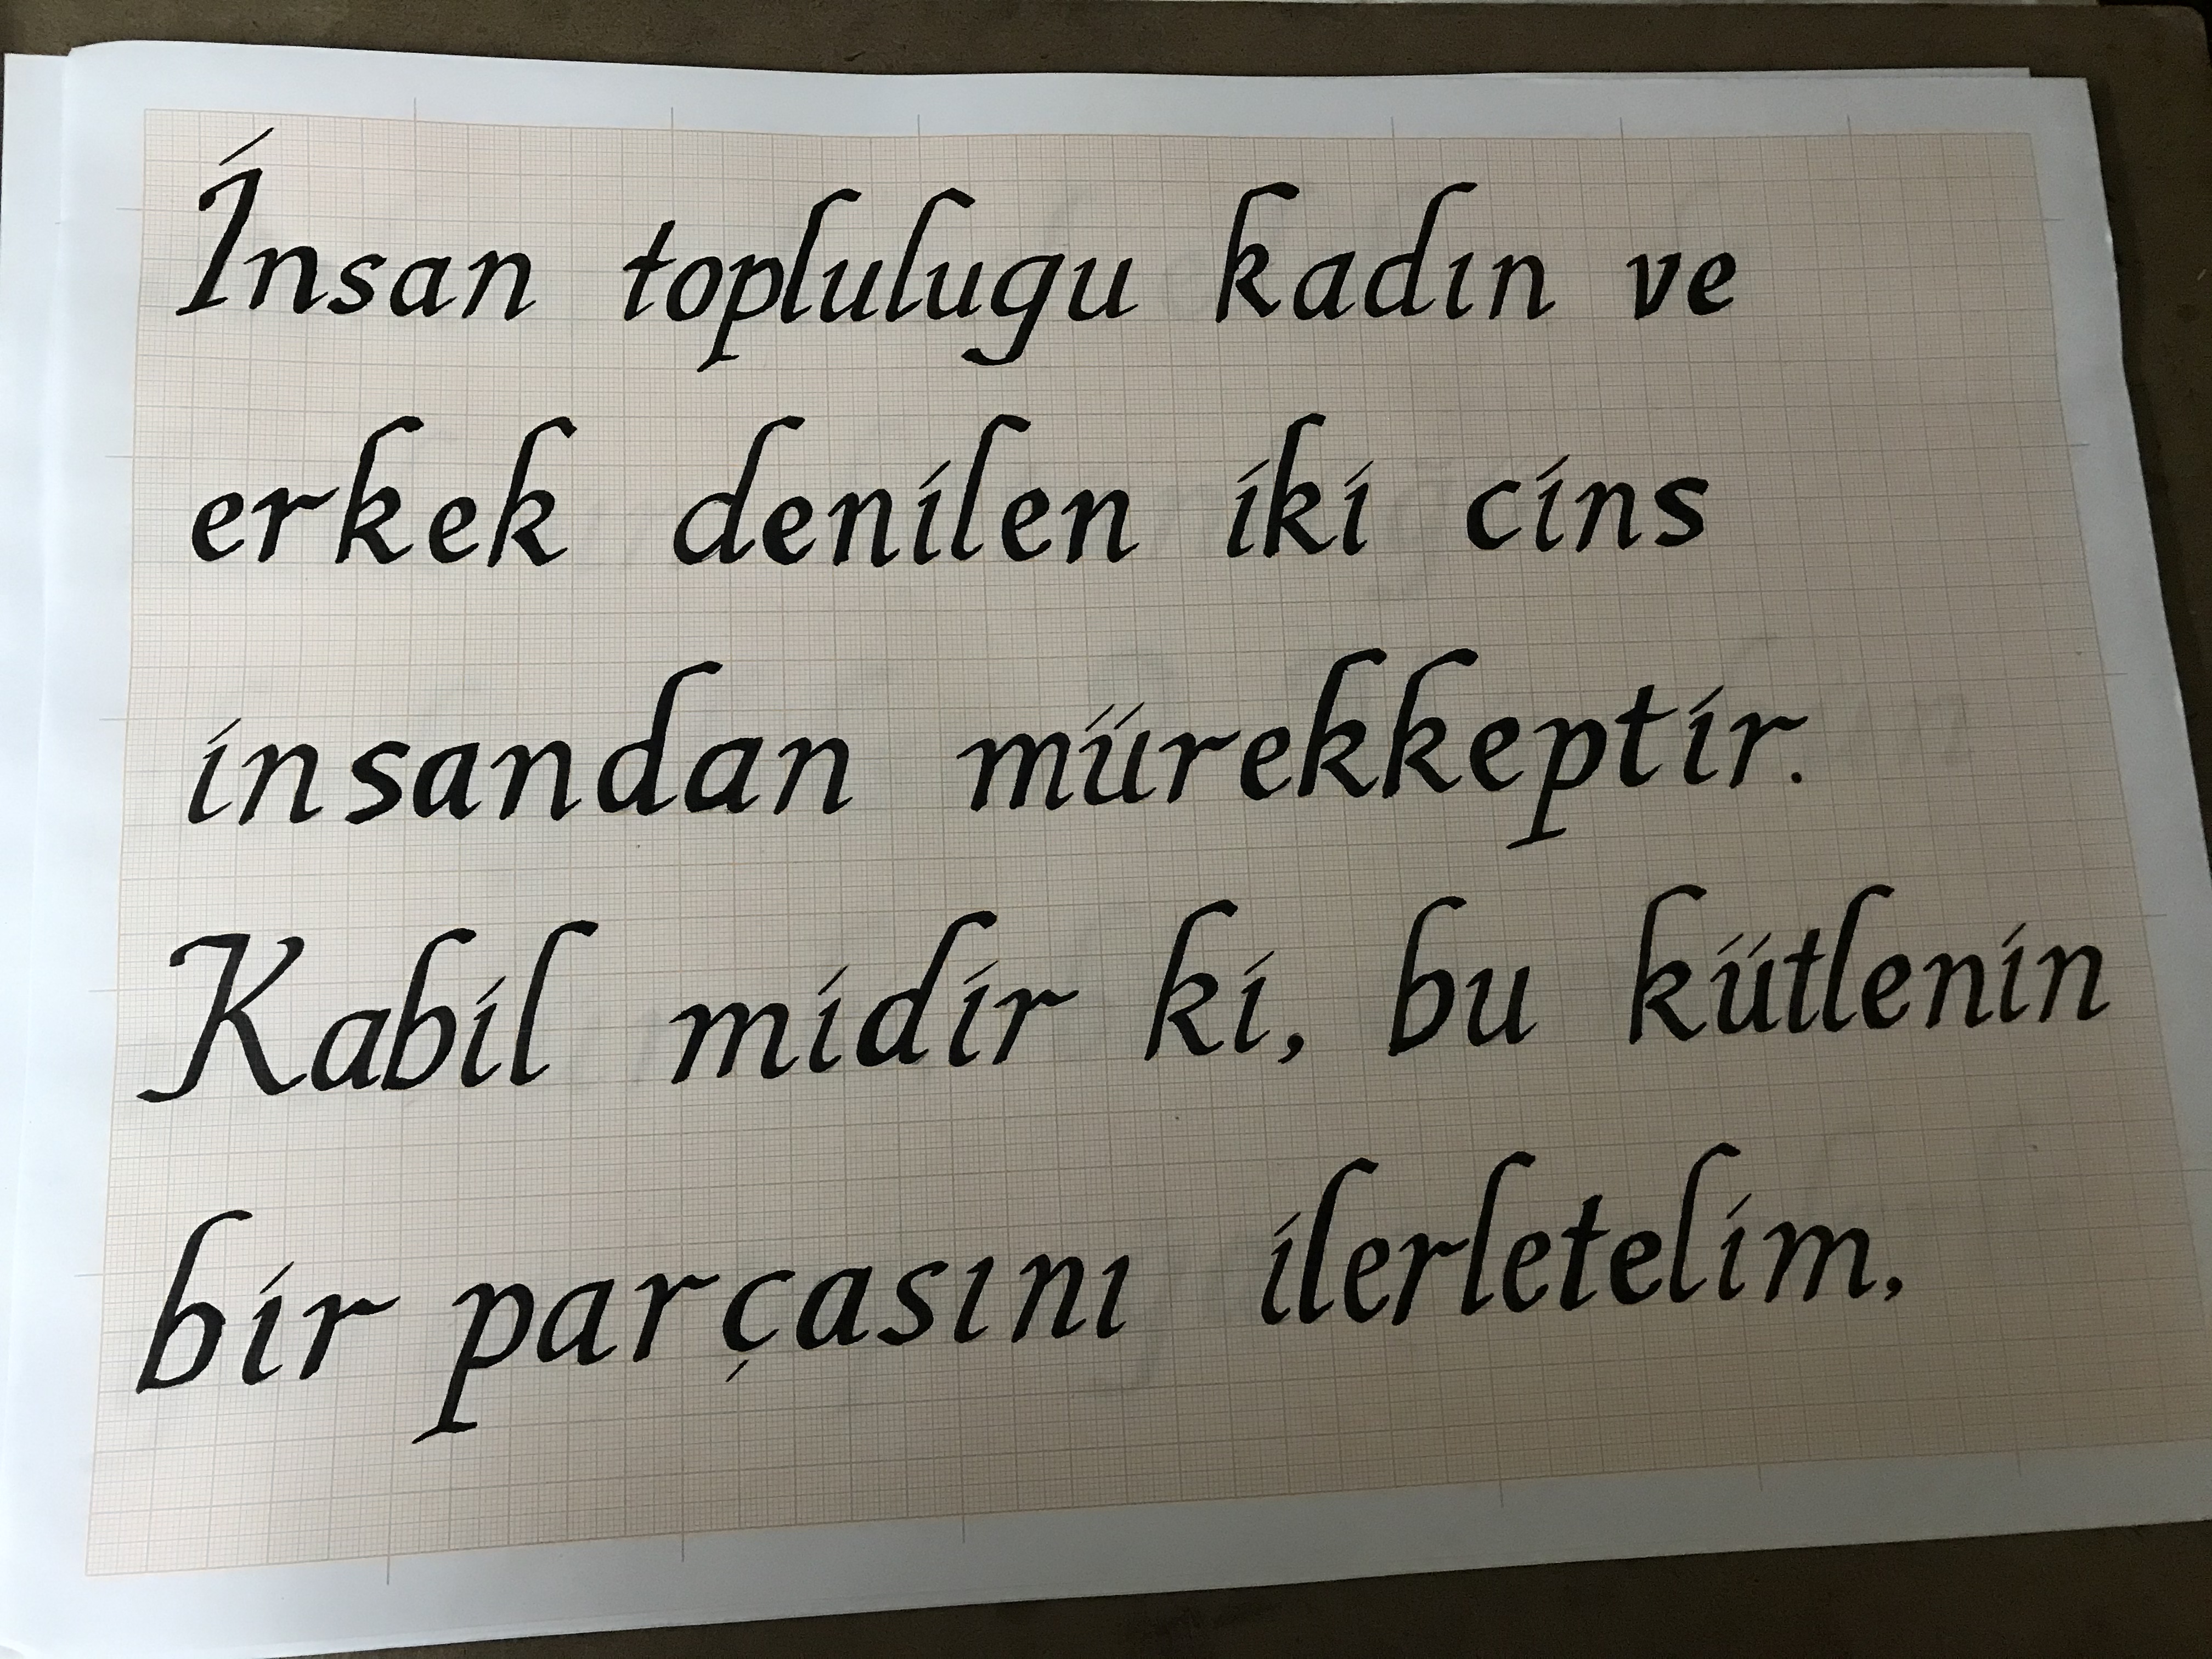 İnsan toplulugu kadın ve
erkek denilen iki cins
insandan mürekkeptir.
Kabil midir ki, bu kütlenin
bir parçasını ilerletelim,